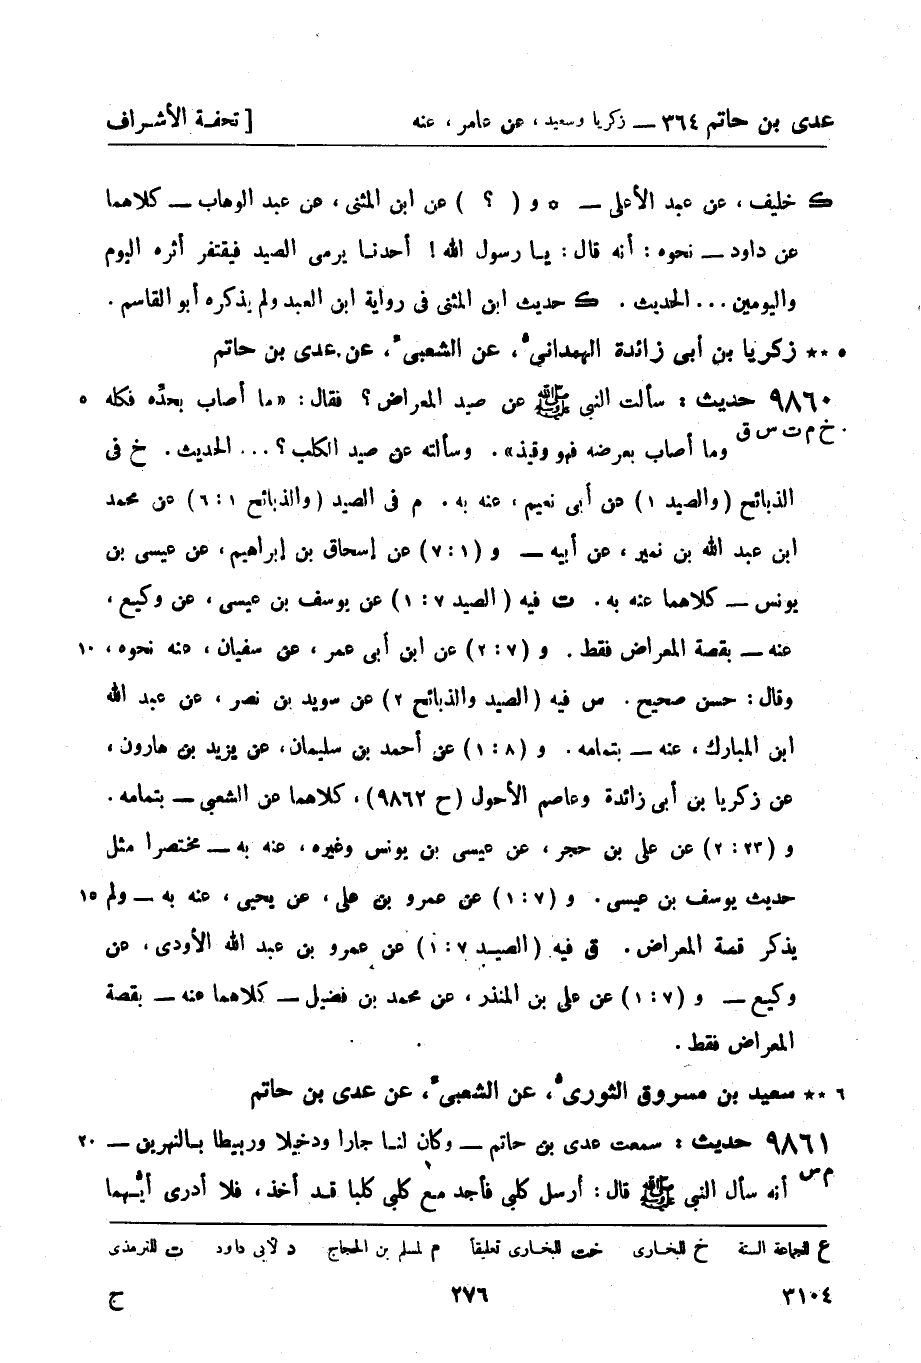 عدى بن حاتم ٣٦٤ — زكريا وسعيد ، عن عامر ، عنه [ تحفة الأشراف
ك خليف ، عن عبد الأعلى — ٥ و ( ؟ ) عن ابن المثنى ، عن عبد الوهاب — كلاهما
عن داود — نحوه : أنه قال : يا رسول الله ! أحدنا يرمى الصيد فيقتفر أثره اليوم
واليومين ... الحديث . ك حديث ابن المثنى فى رواية ابن العبد ولم يذكره أبو القاسم .
٥ ** زكريا بن أبى زائدة الهمدانى ، عن الشعبى ، عن عدى بن حاتم
٩٨٦٠ حديث : سألت النبى ﷺ عن صيد المعراض ؟ فقال : «ما أصاب بحدّه فكله ٥
خ م ت س ق وما أصاب بعرضه فهو وقيذ» . وسألته عن صيد الكلب ؟ ... الحديث . خ فى
الذبائح (والصيد ١) عن أبى نعيم ، عنه به . م فى الصيد (والذبائح ١ : ٦) عن محمد
ابن عبد الله بن نمير ، عن أبيه — و (١ : ٧) عن إسحاق بن إبراهيم ، عن عيسى بن
يونس — كلاهما عنه به . ت فيه ( الصيد ٧ : ١) عن يوسف بن عيسى ، عن وكيع ،
عنه — بقصة المعراض فقط . و (٧ : ٢) عن ابن أبى عمر ، عن سفيان ، عنه نحوه ، ١٠
وقال : حسن صحيح . س فيه (الصيد والذبائح ٢) عن سويد بن نصر ، عن عبد الله
ابن المبارك ، عنه — بتمامه . و (٨ : ١) عن أحمد بن سليمان ، عن يزيد بن هارون ،
عن زكريا بن أبى زائدة وعاصم الأحول (ح ٩٨٦٢) ، كلاهما عن الشعبى — بتمامه .
و (٢٣ : ٢) عن على بن حجر ، عن عيسى بن يونس وغيره ، عنه به — مختصرا مثل
حديث يوسف بن عيسى . و (٧ : ١) عن عمرو بن على ، عن يحيى ، عنه به — ولم ١٥
يذكر قصة المعراض . ق فيه (الصيد ٧ : ١) عن عمرو بن عبد الله الأودى ، عن
وكيع — و (٧ : ١) عن على بن المنذر ، عن محمد بن فضيل — كلاهما عنه — بقصة
المعراض فقط .
٦ ** سعيد بن مسروق الثورى ، عن الشعبى ، عن عدى بن حاتم
٩٨٦١ حديث : سمعت عدى بن حاتم — وكان لنا جارا ودخيلا وربيطا بالنهرين — ٢٠
م س أنه سأل النبى ﷺ قال : أرسل كلبى فأجد مع كلبى كلبا قد أخذ ، فلا أدرى أيهما
ع للجماعة الستة خ للبخارى خت للبخارى تعليقاً م لمسلم بن الحجاج د لأبى داود ت للترمذى
٣١٠٤ ٢٧٦ ج